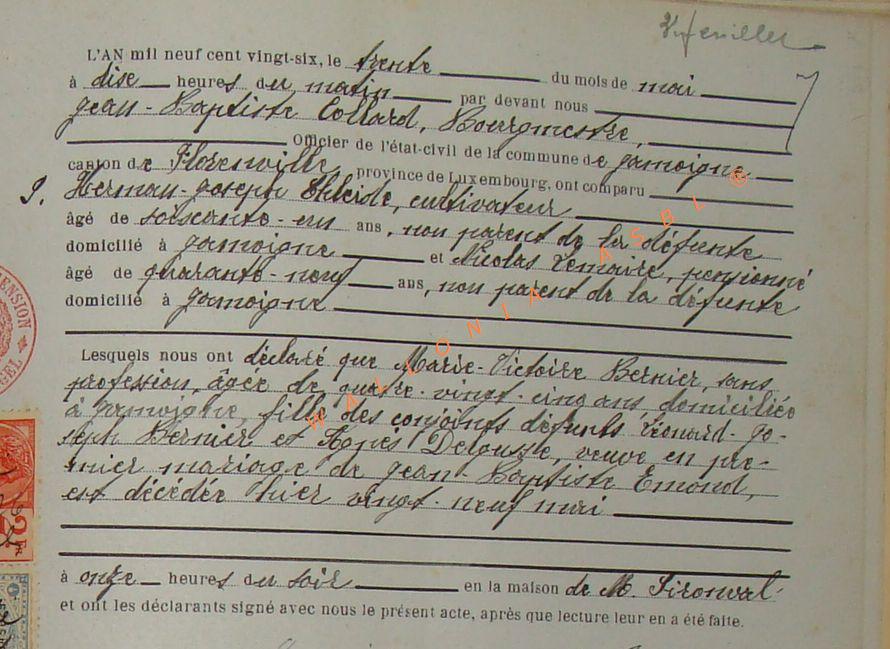 L'AN mil neuf cent vingt-six, le trente du mois de mai
à dise heures du matin par devant nous
Jean-Baptiste Collard, Bourgmestre,
Officier de l'état-civil de la commune de Jamoigne
canton de Florenville province de Luxembourg, ont comparu
Herman-Joseph cultivateur
âgé de soixante-un ans, non parent de la défunte
domicilié à Jamoigne et Nicolas Lemaire, pensionné
âgé de quarante-neuf ans, non parent de la défunte
domicilié à Jamoigne
Lesquels nous ont déclaré que Marie-Victoire Bernier, sans
profession, âgée de quatre-vingt-cinq ans, domiciliée
à Jamoigne, fille des conjoints défunts Léonard-Jo-
seph Bernier et Agnès veuve en pre-
mier mariage de Jean-Baptiste Emond,
est décédée hier vingt-neuf mai
à onze heures du soir en la maison de M. Sironval
et ont les déclarants signé avec nous le présent acte, après que lecture leur en a été faite.
WALLONIA ASBL ©